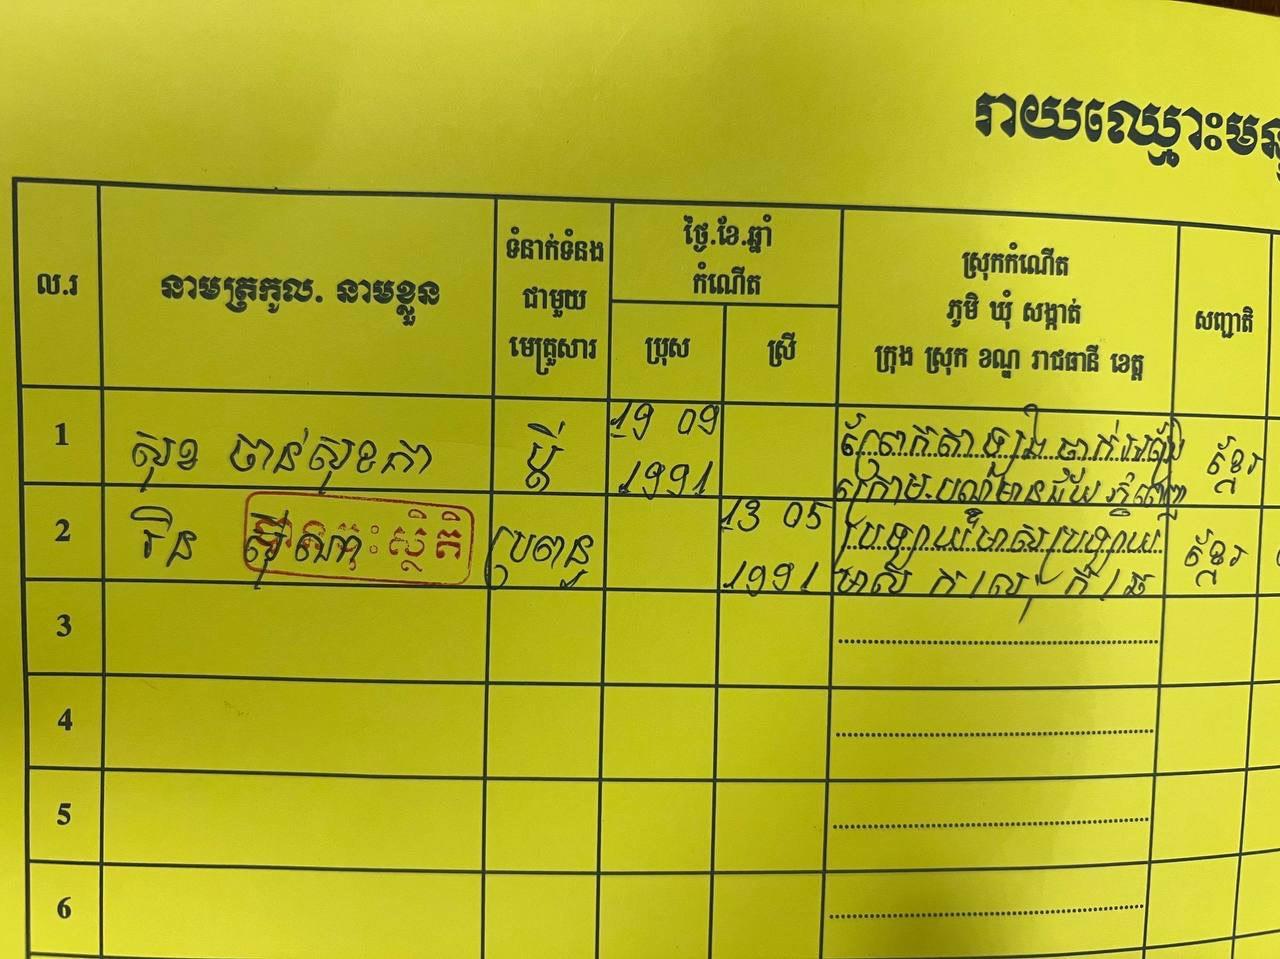 រាយឈ្មោះមនុ
ល.រ
នាមត្រកូល. នាមខ្លួន
ទំនាក់ទំនង
ជាមួយ
មេគ្រួសារ
ថ្ងៃ.ខែ.ឆ្នាំ
កំណើត
ប្រុស
ស្រី
ស្រុកកំណើត
ភូមិ ឃុំ សង្កាត់
ក្រុង ស្រុក ខណ្ឌ រាជធានី ខេត្ត
សញ្ជាតិ
1
សុខ ចាន់សុខភា
ប្តី
19 09
1991
ព្រែកតាឡុង ចាក់អង្រែ
ក្រោម មានជ័យ ភ្នំពេញ
ខ្មែរ
2
រិន
ប្រពន្ធ
13 05
1991
ប្រឡាយមាស ប្រឡាយ
មាស
ខ្មែរ
3
4
5
6